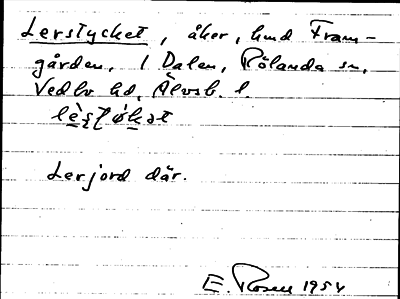 Lerstycket, åker, hmd Fram-
gården, 1 Dalen, Rölanda sn,
Vedbo hd, Älvsb. l.
Lerjord där.
E. Rosen 1954